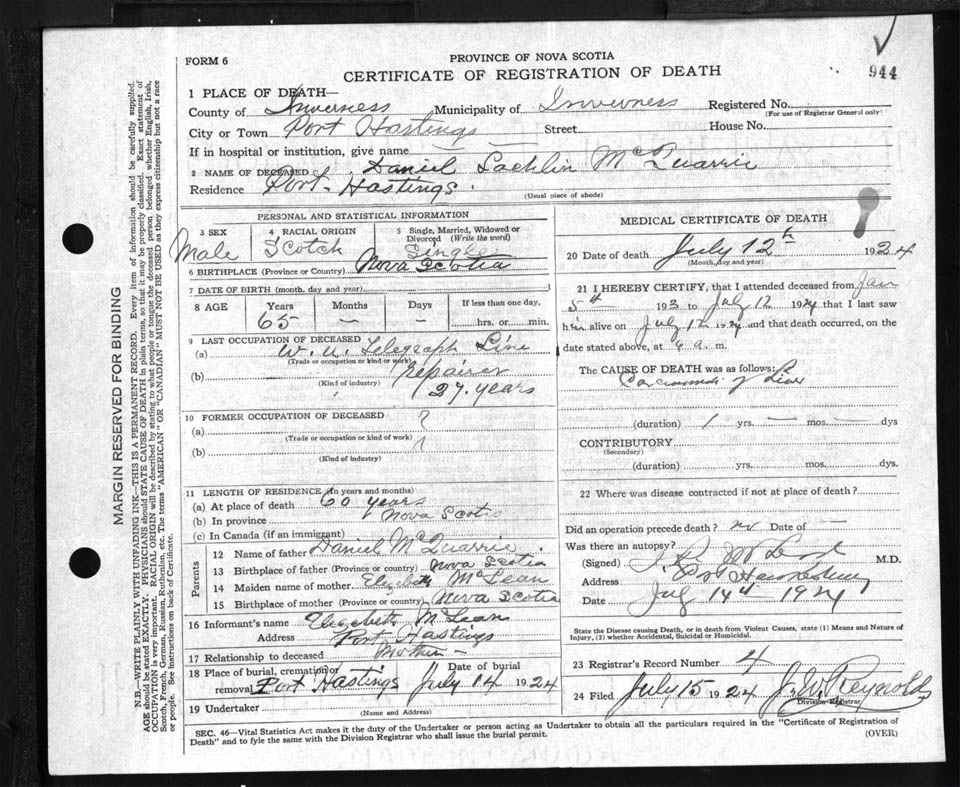 944
PROVINCE OF NOVA SCOTIA
FORM 6
CERTIFICATE OF REGISTRATION OF DEATH
1 PLACE OF DEATH—
County of Inverness Municipality of Inverness Registered No.
(For use of Registrar General only)
City or Town Port Hastings Street House No.
If in hospital or institution, give name
2 NAME OF DECEASED Daniel Lachlin McQuarrie
Residence Port Hastings
(Usual place of abode)
PERSONAL AND STATISTICAL INFORMATION
3 SEX Male
4 RACIAL ORIGIN Scotch
5 Single, Married, Widowed or Divorced (Write the word) Single
6 BIRTHPLACE (Province or Country) Nova Scotia
7 DATE OF BIRTH (month, day and year)
8 AGE Years Months Days If less than one day,
65 — — hrs. or min.
9 LAST OCCUPATION OF DECEASED
(a) W. U. Telegraph Line
(Trade or occupation or kind of work)
(b) repairer
(Kind of industry)
27 years
10 FORMER OCCUPATION OF DECEASED ?
(a)
(Trade or occupation or kind of work)
(b)
(Kind of industry)
11 LENGTH OF RESIDENCE (In years and months)
(a) At place of death 60 years
(b) In province Nova Scotia
(c) In Canada (if an immigrant)
Parents
12 Name of father Daniel McQuarrie
13 Birthplace of father (Province or country) Nova Scotia
14 Maiden name of mother Elizabeth McLean
15 Birthplace of mother (Province or country) Nova Scotia
16 Informant's name Elizabeth McLean
Address Port Hastings
17 Relationship to deceased Mother
18 Place of burial, cremation or removal Port Hastings Date of burial July 14 1924
19 Undertaker
(Name and Address)
MEDICAL CERTIFICATE OF DEATH
20 Date of death July 12th 1924
(Month, day and year)
21 I HEREBY CERTIFY, that I attended deceased from Jan
5th 192 to July 12 1924 that I last saw
him alive on July 1924 and that death occurred, on the
date stated above, at 6 a. m.
The CAUSE OF DEATH was as follows:
Carcinoma of Liver
(duration) 1 yrs. — mos. — dys
CONTRIBUTORY
(Secondary)
(duration) yrs. mos. dys.
22 Where was disease contracted if not at place of death?
Did an operation precede death? no Date of —
Was there an autopsy?
(Signed) M.D.
Address Port Hawkesbury
Date July 14th 1924
State the Disease causing Death, or in death from Violent Causes, state (1) Means and Nature of
Injury, (2) whether Accidental, Suicidal or Homicidal.
23 Registrar's Record Number 4
24 Filed July 15 1924 J. W. Reynolds
Division Registrar
SEC. 46—Vital Statistics Act makes it the duty of the Undertaker or person acting as Undertaker to obtain all the particulars required in the "Certificate of Registration of
Death" and to fyle the same with the Division Registrar who shall issue the burial permit.
(OVER)
MARGIN RESERVED FOR BINDING
N.B.—WRITE PLAINLY WITH UNFADING INK—THIS IS A PERMANENT RECORD. Every item of information should be carefully supplied.
AGE should be stated EXACTLY. PHYSICIANS should STATE CAUSE OF DEATH in plain terms, so that it may be properly classified. Exact statement of
OCCUPATION is very important. RACIAL ORIGIN will be described by stating to what people or tongue the deceased person belonged whether English, Irish,
Scotch, French, German, Russian, Ruthenian, etc. The terms "AMERICAN" OR "CANADIAN" MUST NOT BE USED as they express citizenship but not a race
or people. See instructions on back of Certificate.